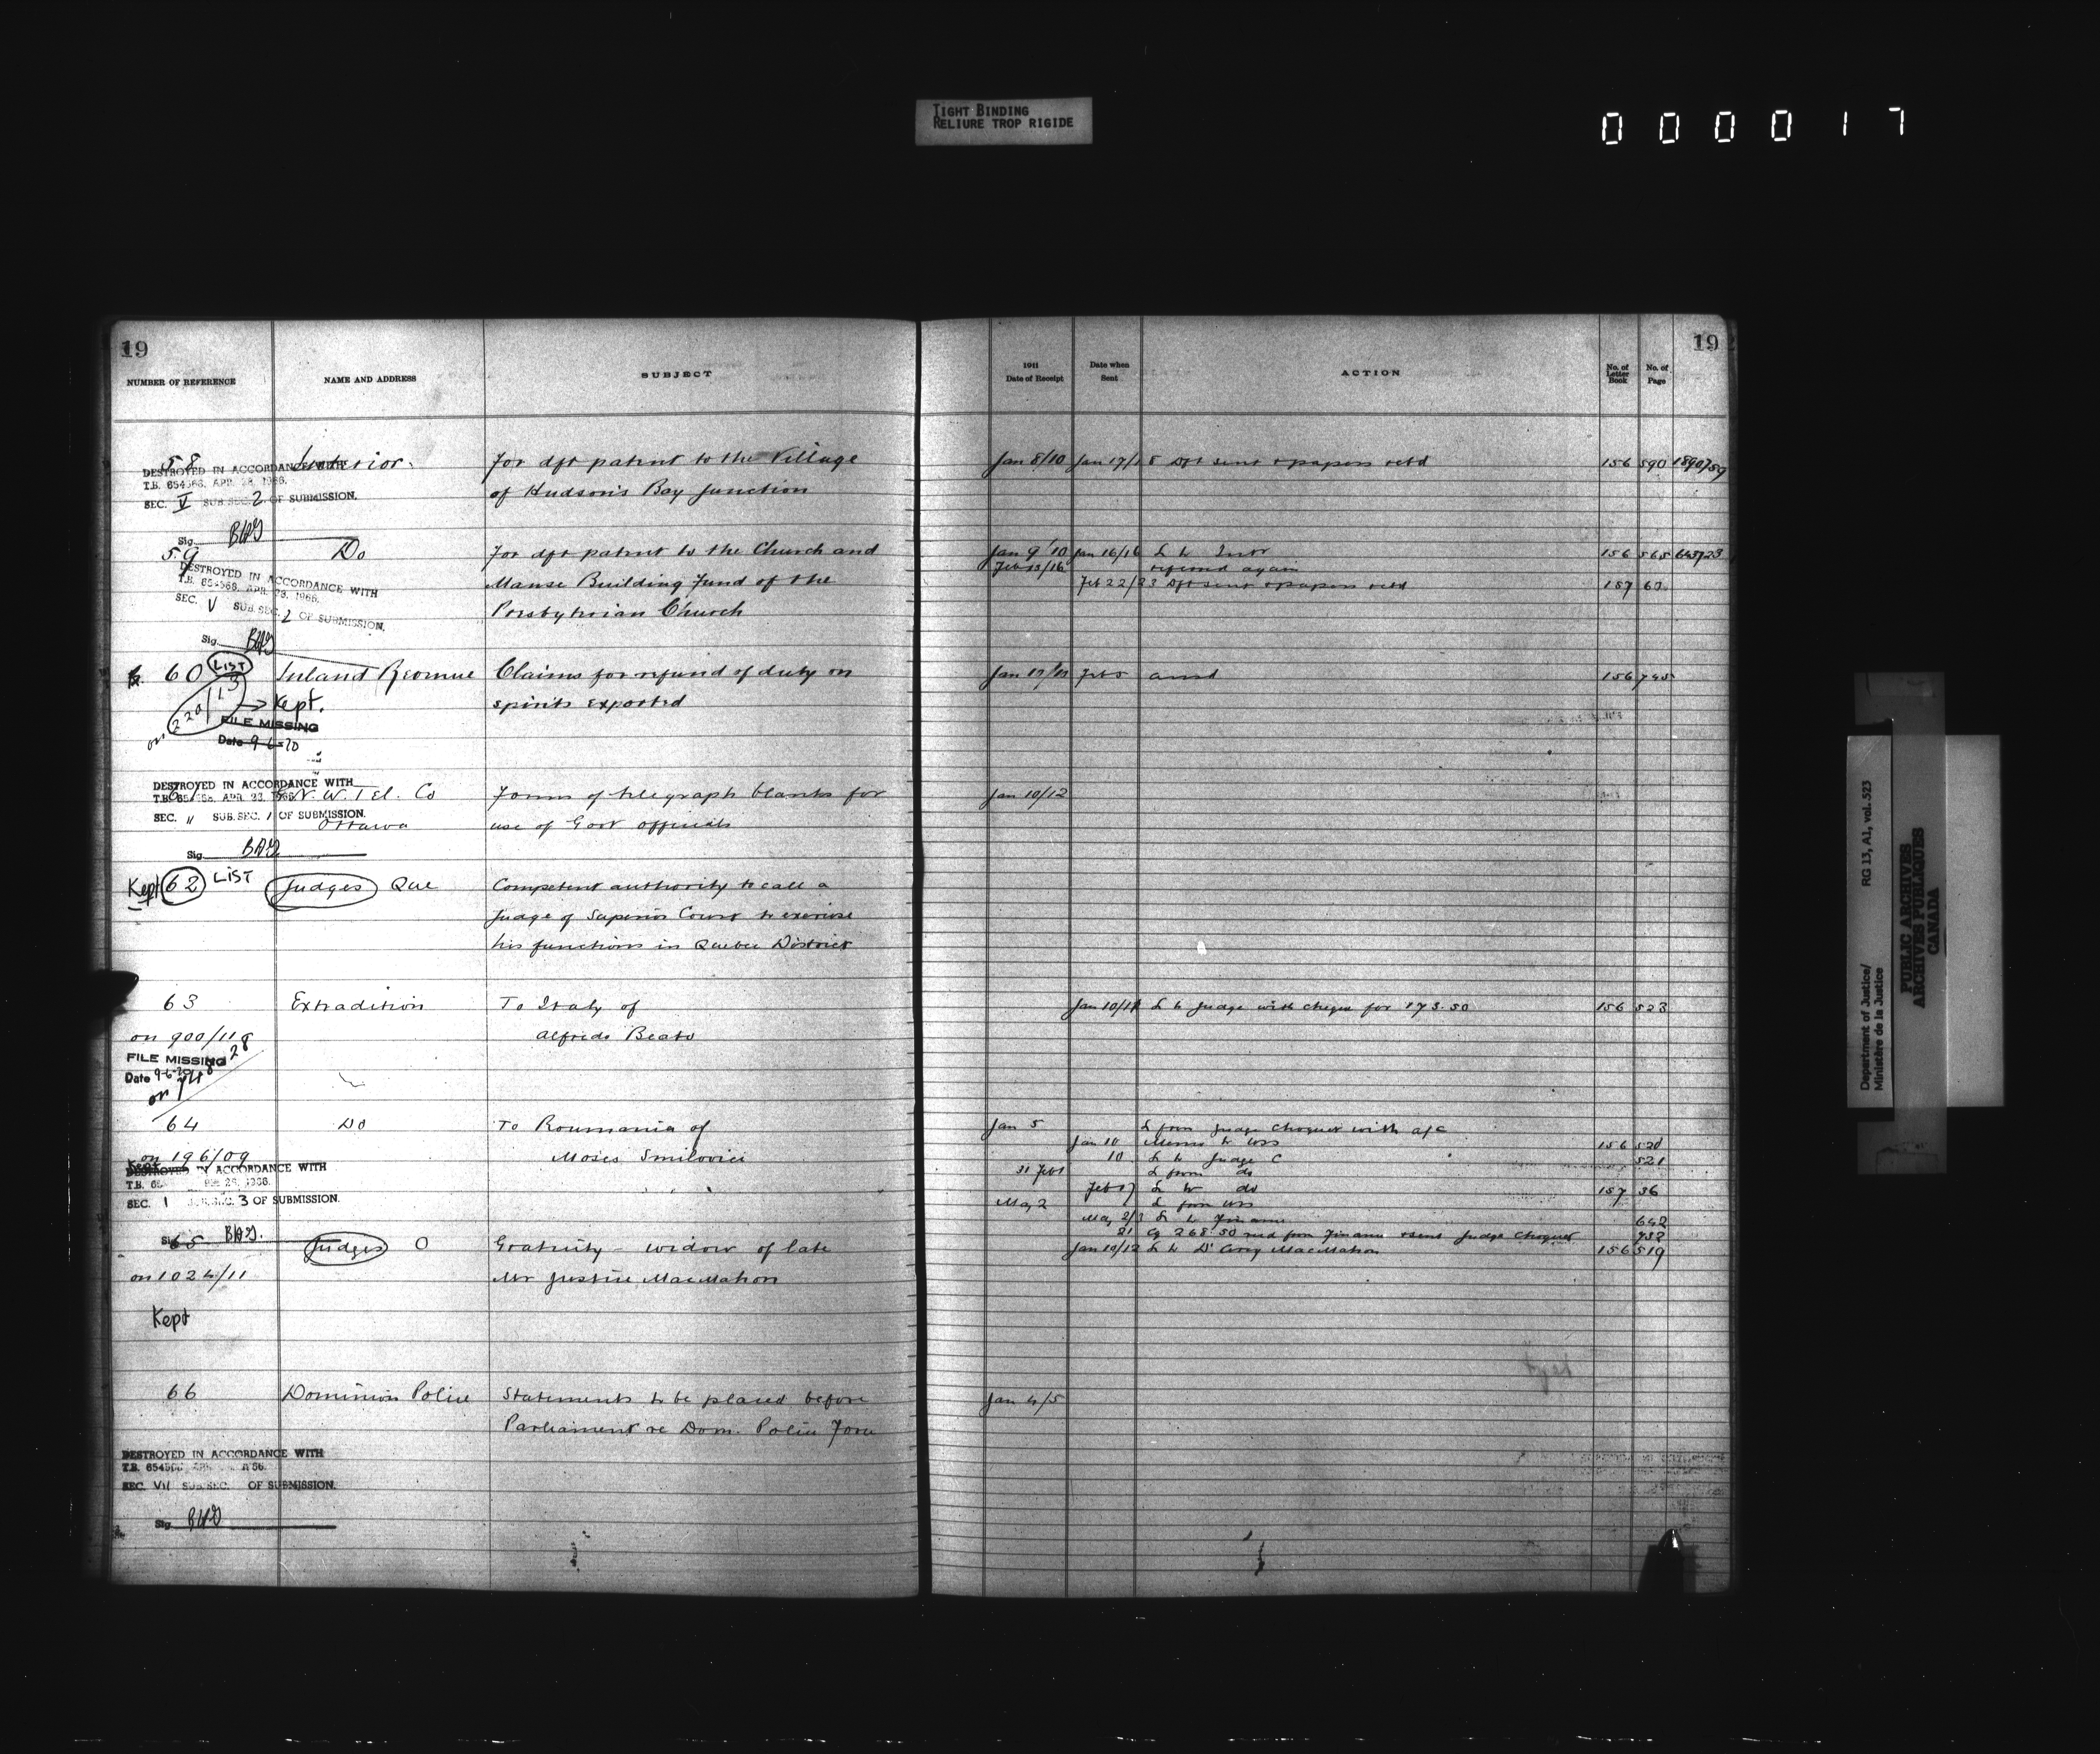 TIGHT BINDING
RELIURE TROP RIGIDE
000017
19
NUMBER OF REFERENCE
NAME AND ADDRESS
SUBJECT
58 Interior. For dft patent to the Village
of Hudson's Bay Junction
DESTROYED IN ACCORDANCE WITH
T.B. 654568, APR. 28, 1966.
SEC. V SUB.SEC. 2 OF SUBMISSION.
Sig.
59 Do For dft patent to the Church and
Manse Building Fund of the
Presbyterian Church
DESTROYED IN ACCORDANCE WITH
T.B. 654568, APR. 28, 1966.
SEC. V SUB.SEC. 2 OF SUBMISSION.
Sig.
60 LIST Inland Revenue Claims for refund of duty on
spirits exported
on 220/13 → Kept.
FILE MISSING
Date 9-6-70
61 G.N.W. Tel. Co Forms of telegraph blanks for
Ottawa use of Govt officials
DESTROYED IN ACCORDANCE WITH
T.B. 654568, APR. 28, 1966.
SEC. II SUB.SEC. 1 OF SUBMISSION.
Sig.
Kept 62 LIST Judges Que Competent authority to call a
Judge of Superior Court to exercise
his functions in Quebec District
63 Extradition To Italy of
on 900/11 Alfredo Beato
FILE MISSING
Date 9-6-70
64 Do To Roumania of
on 196/09 Moses Smilovici
Kept
DESTROYED IN ACCORDANCE WITH
SEC. 1 SUB.SEC. 3 OF SUBMISSION.
Sig.
65 Judges O Gratuity - widow of late
on 1024/11 Mr Justice MacMahon
Kept
66 Dominion Police Statements to be placed before
Parliament re Dom. Police Force
DESTROYED IN ACCORDANCE WITH
SEC. VII SUB.SEC. OF SUBMISSION.
Sig.
19
1911
Date of Receipt
Date when
Sent
ACTION
No. of
Letter
Book
No. of
Page
Jan 8/10 Jan 17/18 Dft sent & papers retd 156 590 1890759
Jan 9/10 Jan 16/16 L to Intr 156 565
Feb 13/16 referred again
Feb 22/23 Dft sent & papers retd 157
Feb 5 156 745
Jan 10/12
Jan 10/11 L to Judge with cheque for 173.50 156 523
Jan 5 L from Judge Choquet with a/c
Jan 10 Memo to 156 520
10 L to Judge C 521
31 Feb 1 L from do
Feb L to do 157 36
May 2 L from
May 2/3 L to Finance 642
21 Cq 268.50 recd from Finance & sent Judge Choquet 732
Jan 10/12 L to MacMahon 156 519
Jan 4/5
Department of Justice/
Ministère de la Justice
RG 13, A1, vol. 523
PUBLIC ARCHIVES
ARCHIVES PUBLIQUES
CANADA